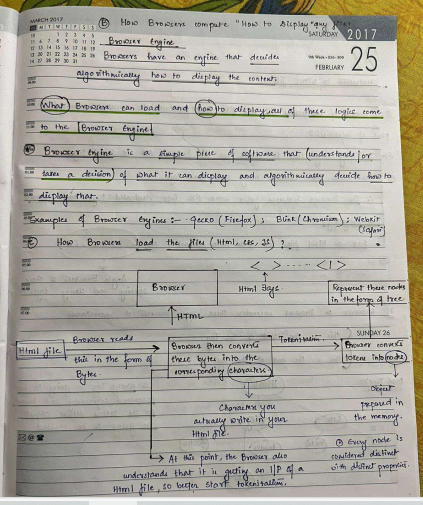 MARCH 2017
M T W T F S S
1 2 3 4 5
6 7 8 9 10 11 12
13 14 15 16 17 18 19
20 21 22 23 24 25 26
27 28 29 30 31
How Browsers compute "How to Display" any
SATURDAY 2017
FEBRUARY 25
Browser Engine
Browsers have an engine that decides
algorithmically how to display the contents.
What Browsers can load and how to display, all of these logics come
to the Browser Engine
Browser Engine is a simple piece of software that understands or
takes a decision of what it can display and algorithmically decide how to
display that.
Examples of Browser Engines :- gecko (Firefox) ; Blink (Chromium) ; Webkit
(Safari)
How Browsers load the files (Html, css, JS) ?
< > ----- </>
Browser
Html Tags.
Represent these nodes
in the form of tree
HTML
SUNDAY 26
Html file
Browser reads
this in the form of
Bytes.
Browser then converts
these bytes into the
corresponding characters
Tokenization
Browser converts
tokens into nodes
Characters you
actually write in your
Html file.
Object
prepared in
the memory.
Every node is
considered distinct
with distinct properties.
At this point, the Browser also
understands that it is getting an I/P of a
Html file, so better start tokenization.